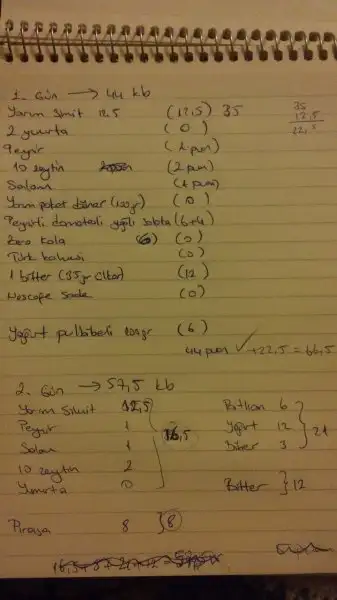 1. Gün → 44 kb
Yarım Simit 12,5 (12,5) 35
35
12,5
22,5
2 yumurta (0)
Peynir (1 puan)
10 zeytin (2 puan)
Salam (1 puan)
Yarım paket döner (100gr) (0)
Peynirli domatesli yağlı salata (6+4)
Zero kola (0)
Türk kahvesi (0)
1 bitter (35gr (12)
Nescafe Sade (0)
Yoğurt pulbiberli 100gr (6)
44 puan ✓ +22,5 = 66,5
2. Gün → 57,5 kb
Yarım Simit 12,5
Peynir 1
Salam 1
10 zeytin 2
Yumurta 0
16,5
6
Yğurt 12
3
21
Bitter } 12
8 } (8)